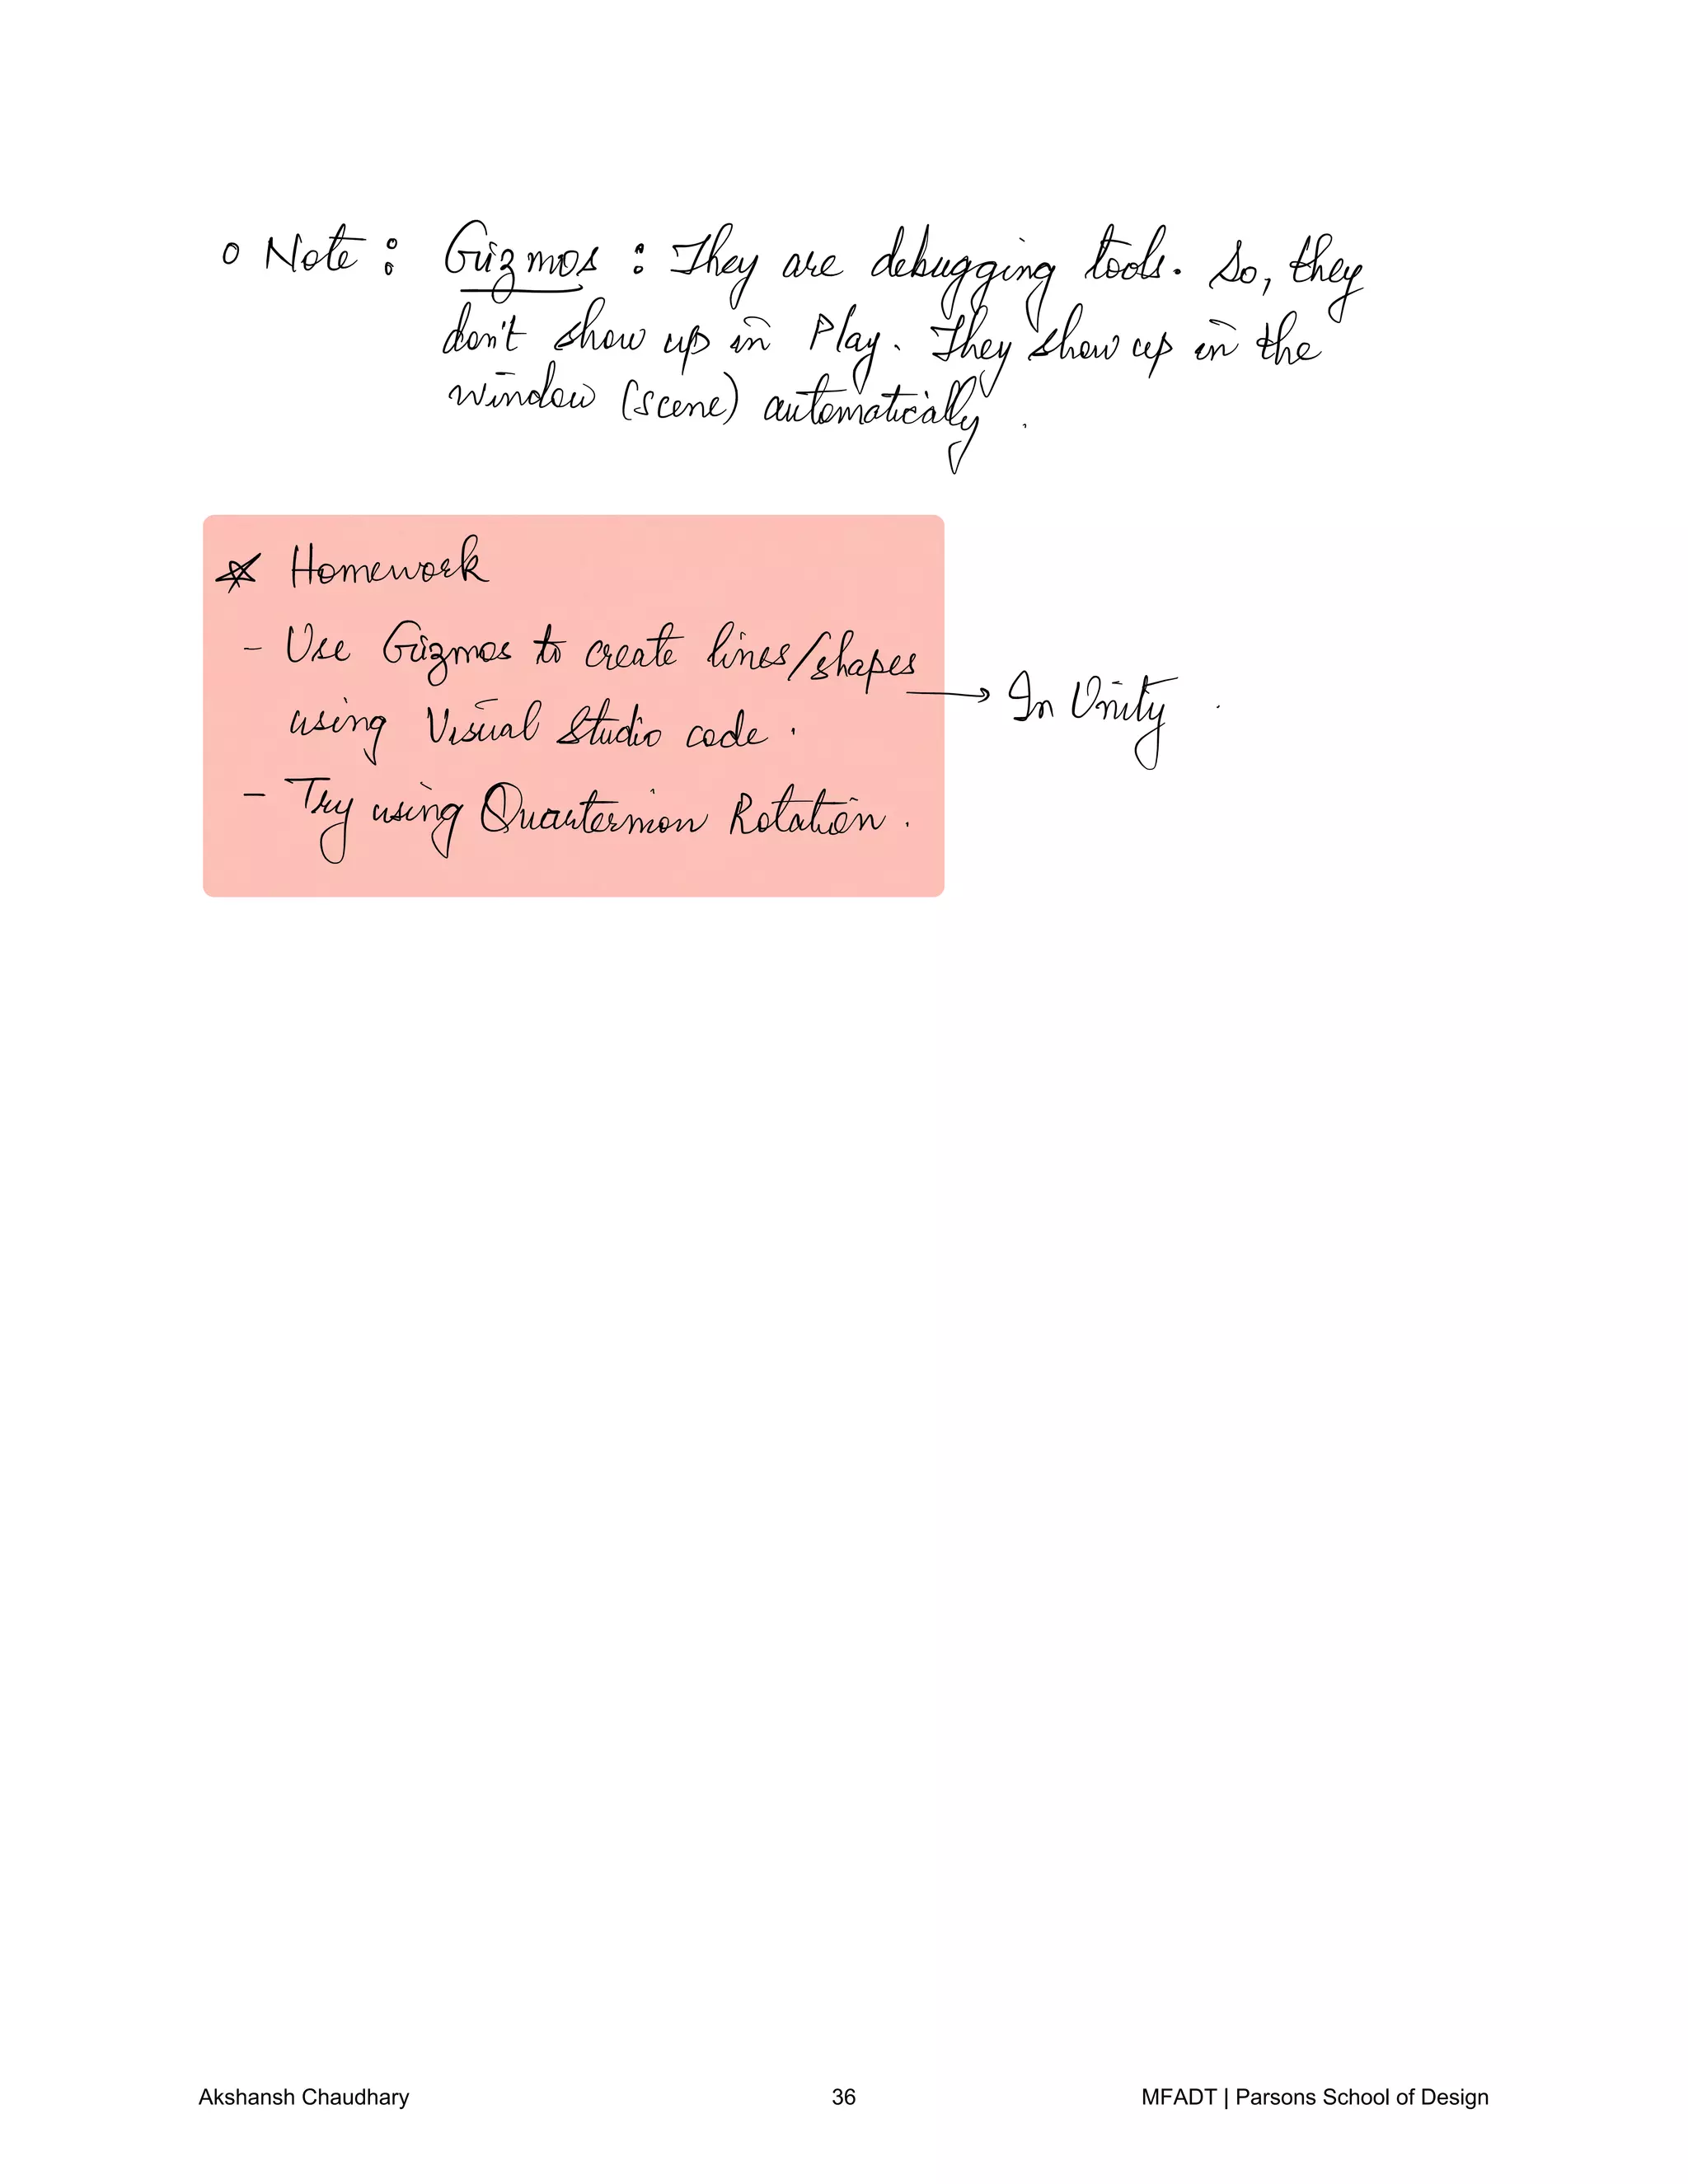 o Note : Gizmos : They are debugging tools. So, they
don't show up in Play. They show up in the
window (scene) automatically.
☆ Homework
- Use Gizmos to create lines/shapes
using Visual Studio code.
→ In Unity.
- Try using Quarternion Rotation.
Akshansh Chaudhary 36 MFADT | Parsons School of Design